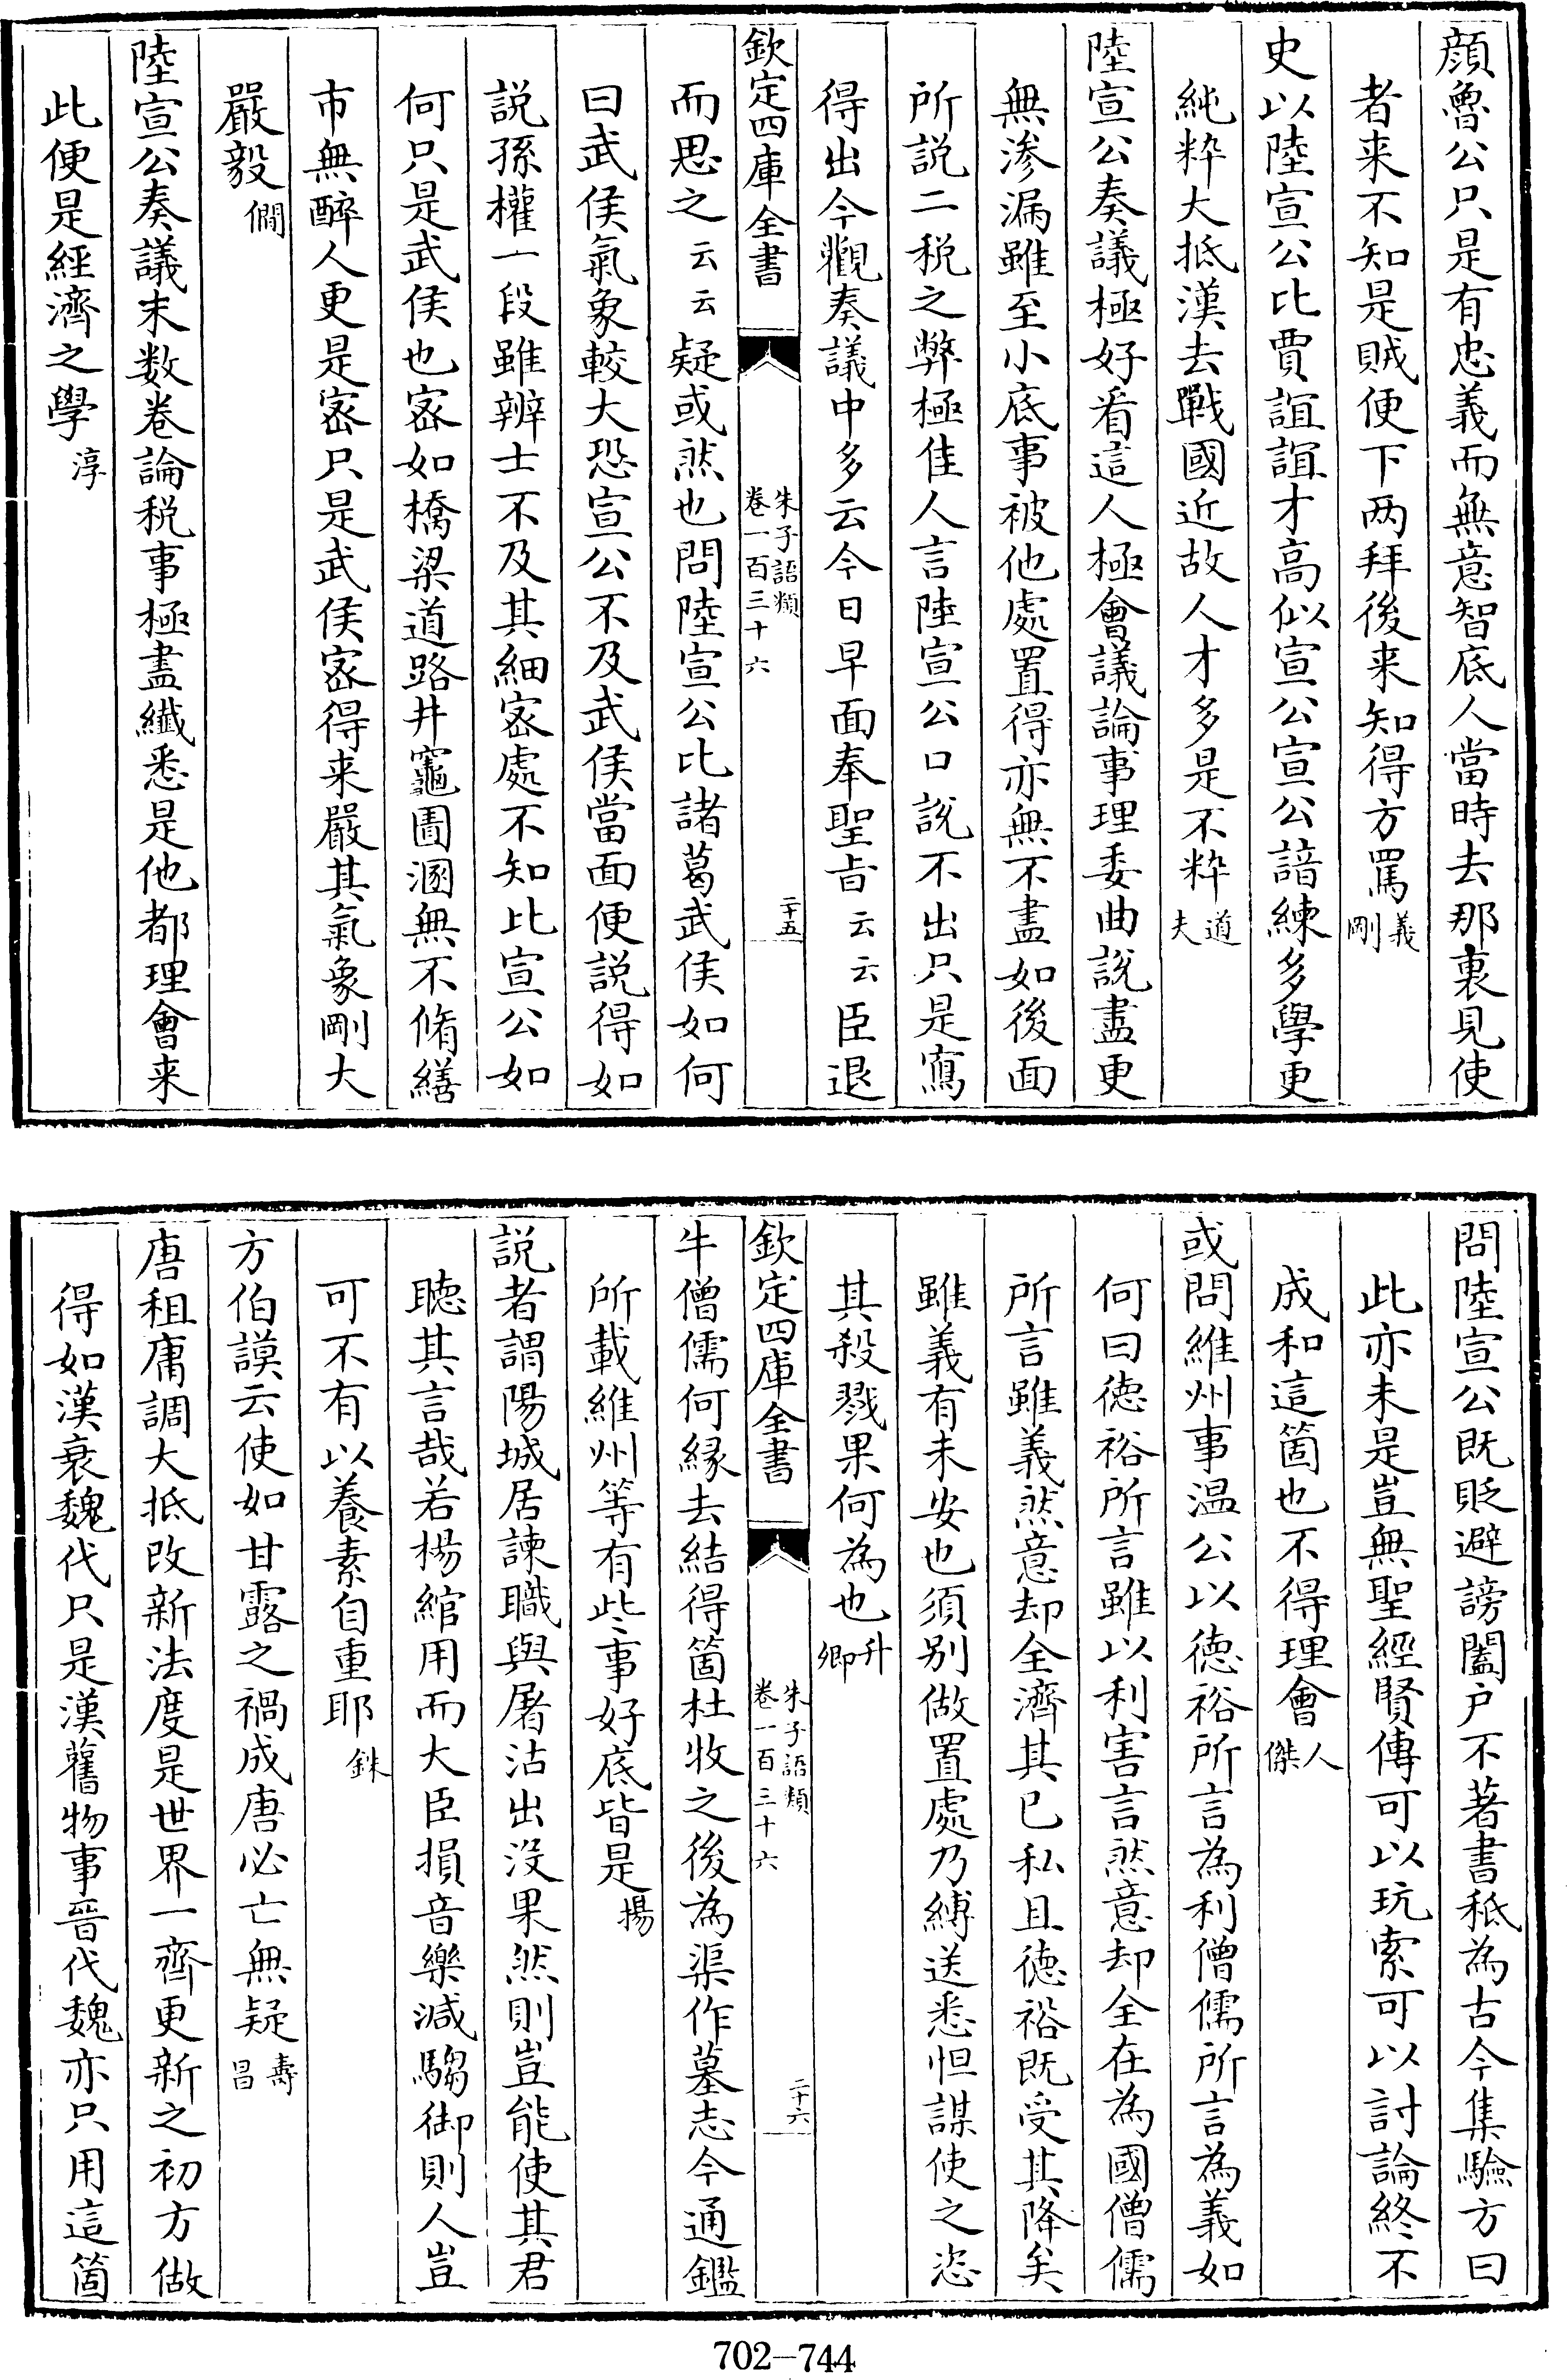 顔魯公只是有忠義而無意智底人當時去那裏見使
者来不知是賊便下两拜後来知得方罵義剛
史以陸宣公比賈誼誼才髙似宣公宣公諳練多學更
純粹大抵漢去戰國近故人才多是不粹道夫
陸宣公奏議極好看這人極會議論事理委曲説盡更
無滲漏雖至小底事被他處置得亦無不盡如後面
所説二税之弊極佳人言陸宣公口說不出只是寫
得出今觀奏議中多云今日早面奉聖旨云云臣退
欽定四庫全書
朱子語類
卷一百三十六
二十五
而思之云云疑或然也問陸宣公比諸葛武侯如何
曰武侯氣象較大恐宣公不及武侯當面便説得如
說孫權一段雖辨士不及其細宻處不知比宣公如
何只是武侯也宻如橋梁道路井竈圊溷無不脩繕
市無醉人更是宻只是武侯宻得来嚴其氣象剛大
嚴毅僩
陸宣公奏議末数卷論税事極盡纎悉是他都理會来
此便是經濟之學淳
問陸宣公既貶避謗闔户不著書秪為古今集驗方曰
此亦未是豈無聖經賢傳可以玩索可以討論終不
成和這箇也不得理會人傑
或問維州事温公以徳裕所言為利僧儒所言為義如
何曰徳裕所言雖以利害言然意却全在為國僧儒
所言雖義然意却全濟其已私且徳裕既受其降矣
雖義有未安也須别做置處乃縛送悉怛謀使之恣
其殺戮果何為也升卿
欽定四庫全書
朱子語類
卷一百三十六
二十六
牛僧儒何縁去結得箇杜牧之後為渠作墓志今通鑑
所載維州等有些事好底皆是揚
説者謂陽城居諫職與屠沽出沒果然則豈能使其君
聴其言哉若楊綰用而大臣損音樂減騶御則人豈
可不有以養素自重耶銖
方伯謨云使如甘露之禍成唐必亡無疑壽昌
唐租庸調大抵改新法度是世界一齊更新之初方做
得如漢衰魏代只是漢舊物事晉代魏亦只用這箇
702-744